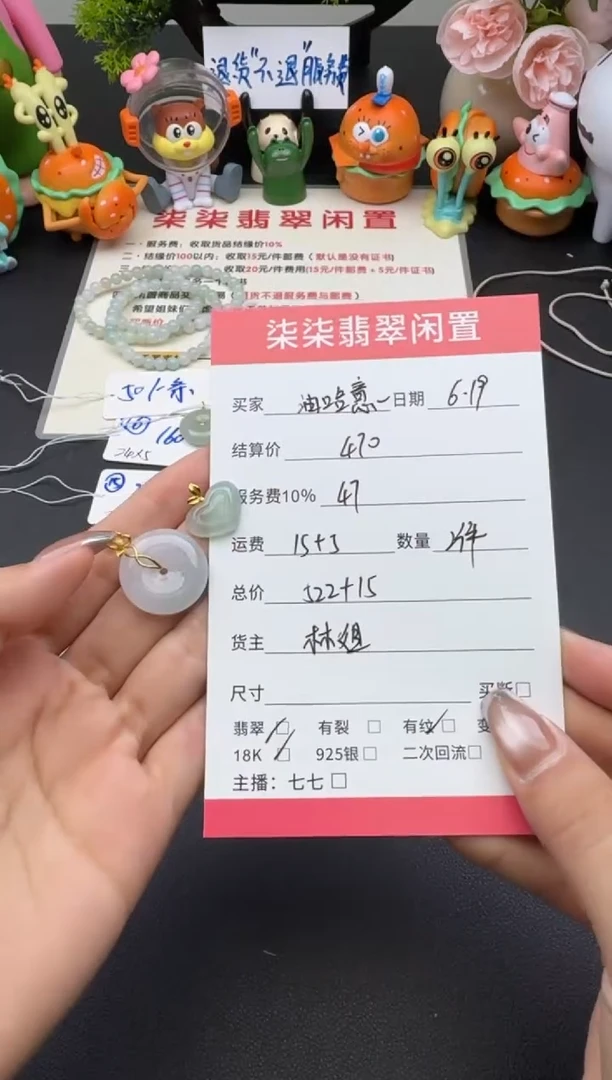 退货“不退”服务费
柒柒翡翠闲置
一·服务费：收取货品结缘价10%
二·结缘价100以内：收取15元/件邮费（默认是没有证书）
收取20元/件费用(15元/件邮费+5元/件证书)
50/条
⑥ 160
24×5
⑮
柒柒翡翠闲置
买家 油 日期 6.19
结算价 470
服务费10% 47
运费 15+5 数量 2件
总价 522+15
货主 林姐
尺寸 买断□
翡翠☑ 有裂□ 有纹☑ 变
18K☑ 925银□ 二次回流□
主播：七七□